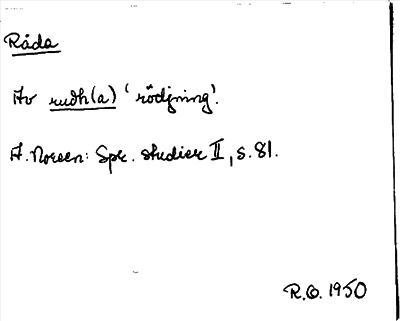 Råda
Av rudh(a) 'rödjning'.
A. Noreen: Spr. studier II, s. 81.
R.O. 1950